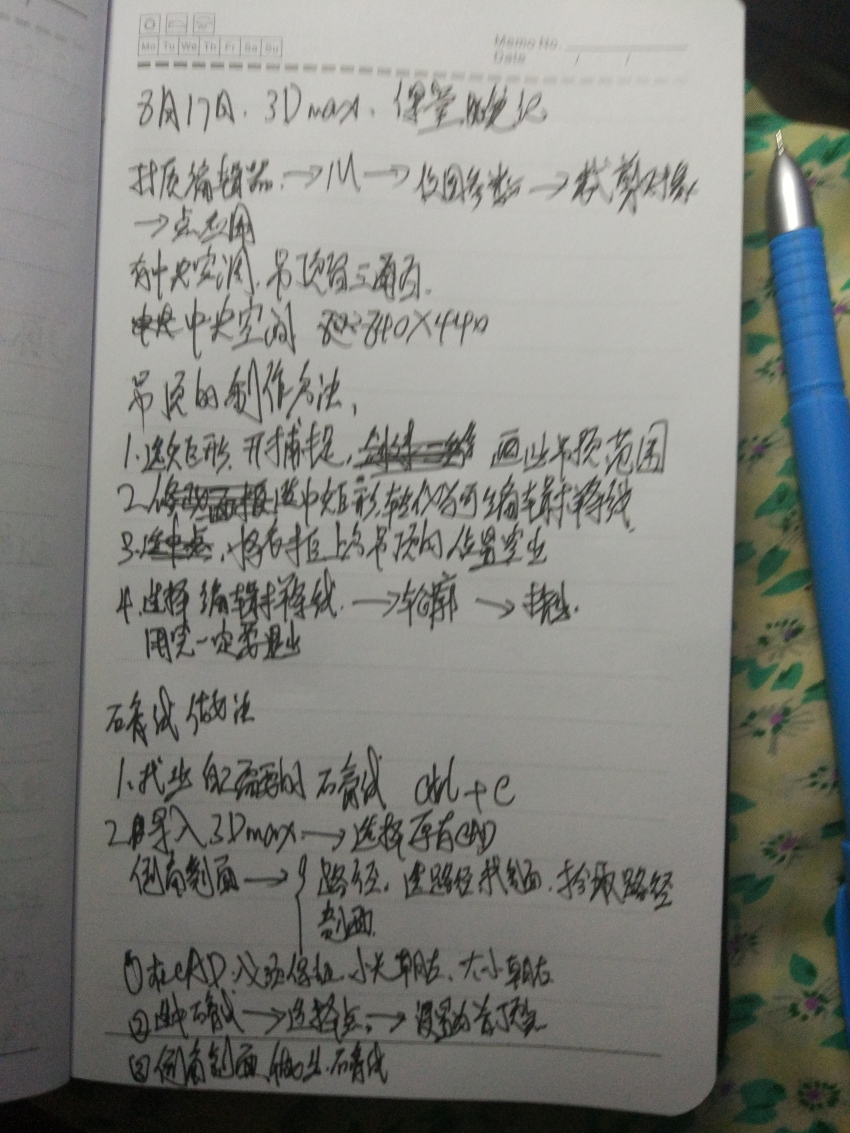 Mo Tu We Th Fr Sa Su
Memo No.
Date / /
8月17日、3Dmax、课堂随笔记
材质编辑器→M→位图参数→裁剪对象
→点应用
有中央空调,吊顶留三面,
中央空间 840×440
吊顶的制作方法,
1.选矩形,开捕捉, 画出吊顶范围
2. 选中矩形,转化为可编辑样条线
3. 将衣柜上方吊顶的位置空出
4.选择编辑样条线→轮廓→挤出.
用完一定要退出
石膏线做法
1.找出自己需要的石膏线 ctrl+C
2.导入3Dmax→选择原有CAD
倒角剖面→{路径,选路径找剖面,拾取路径
剖面.
①在CAD,必须保证,小头朝左、大小朝右
②选中石膏线→选择点,→设置为首顶点
③倒角剖面,做出石膏线